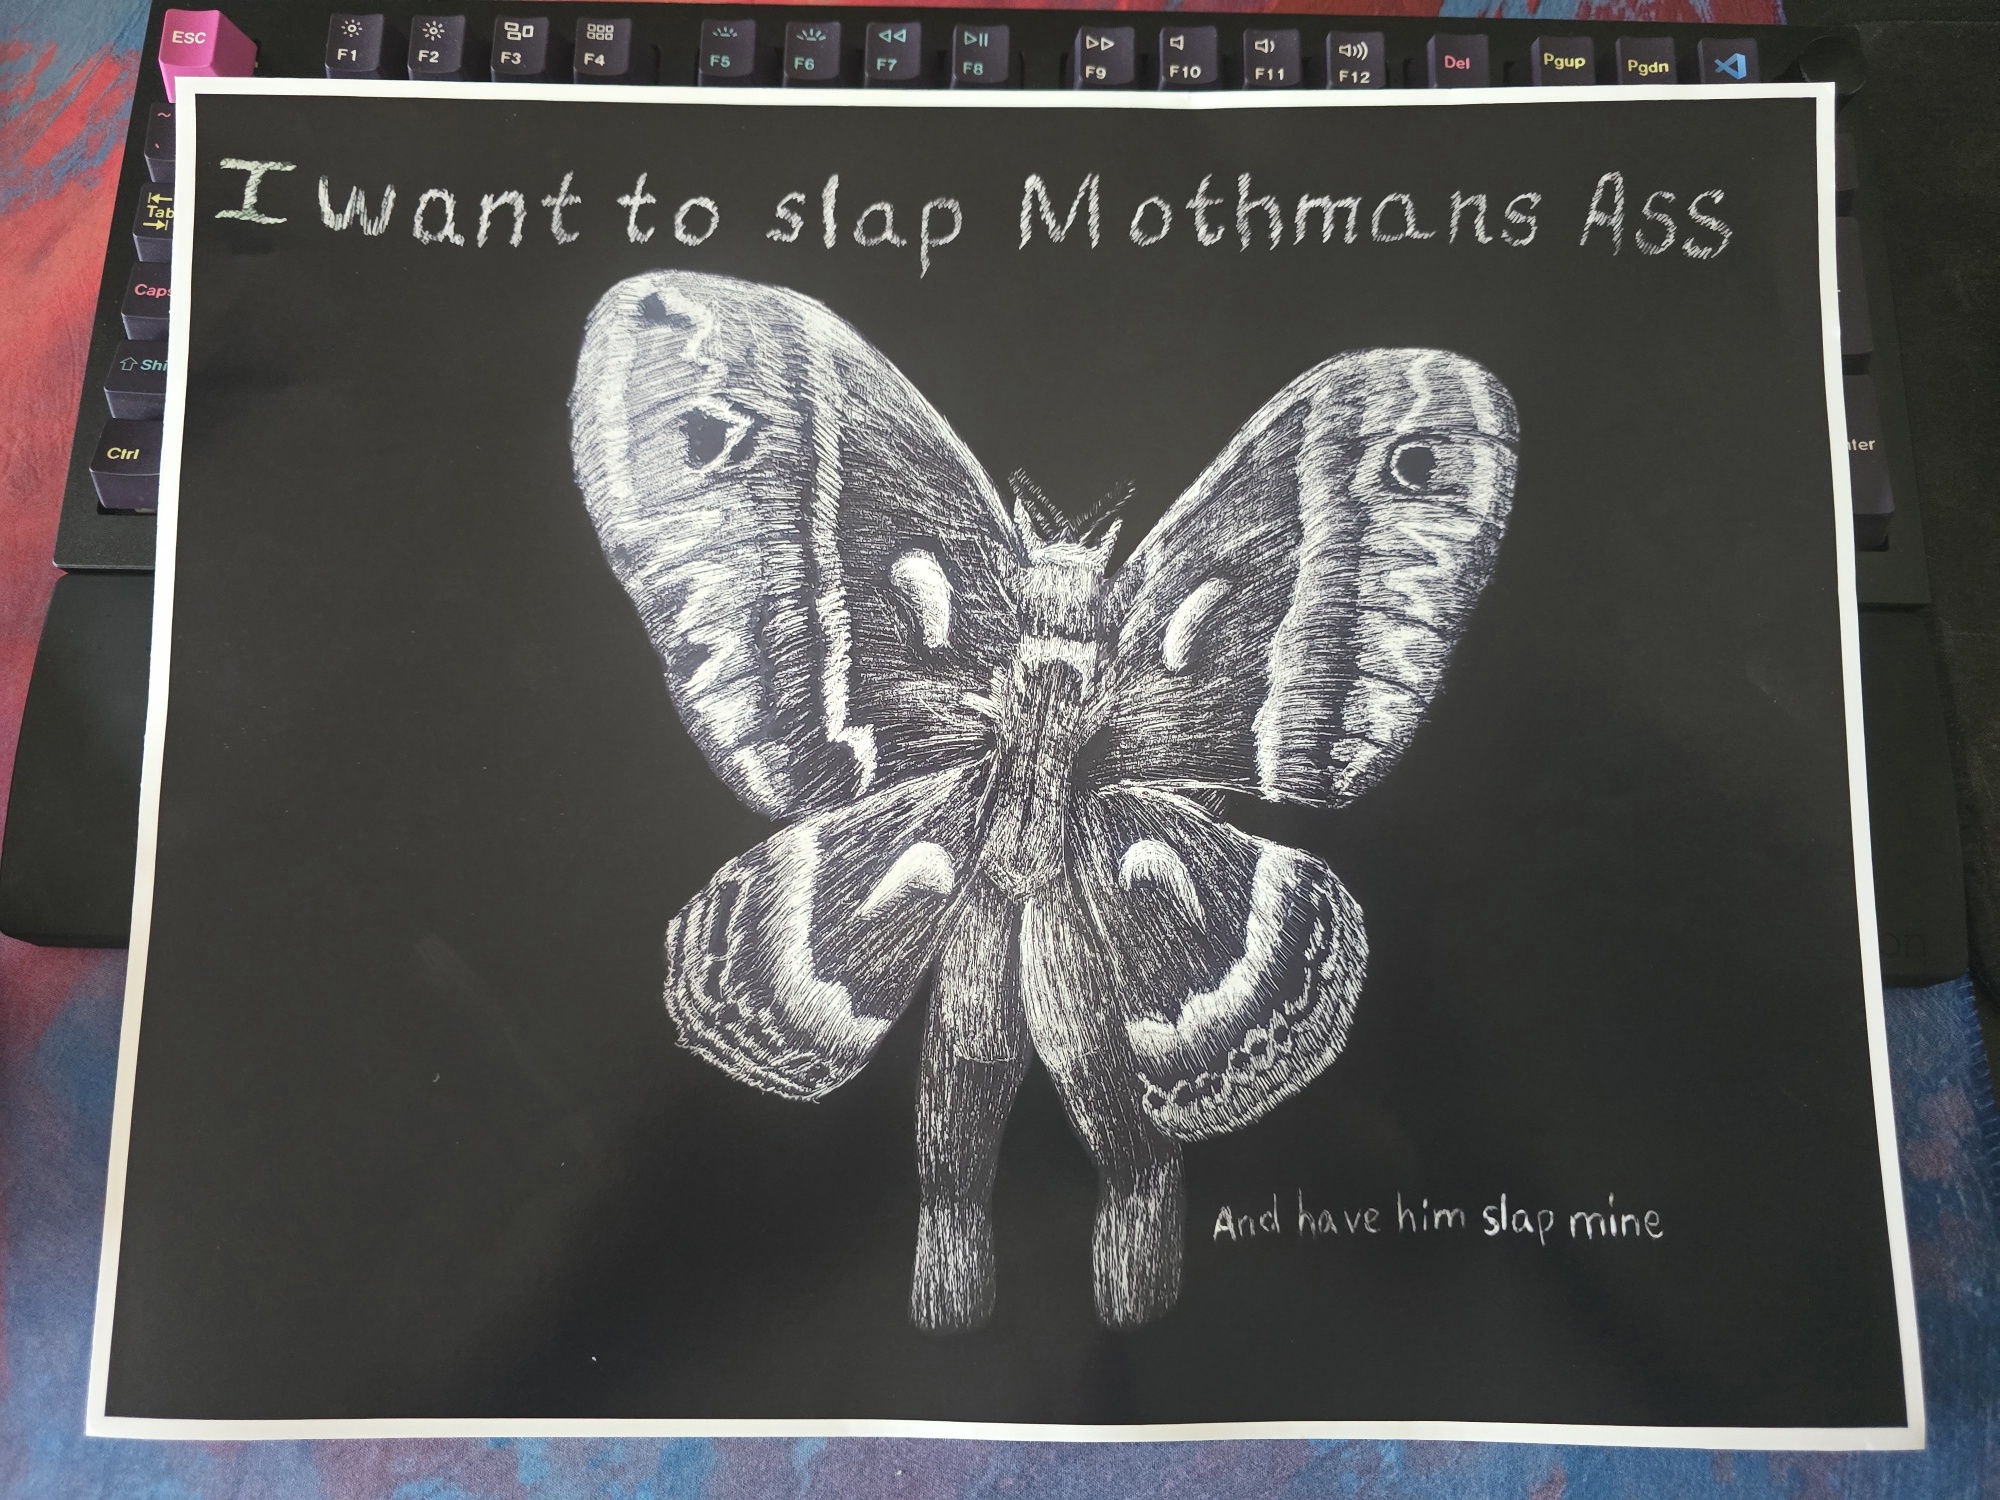 ESC F1 F2 F3 F4 F5 F6 F7 F8 F9 F10 F11 F12 Del Pgup Pgdn
I want to slap Mothmans Ass
Tab
Caps
Shi
Ctrl
And have him slap mine